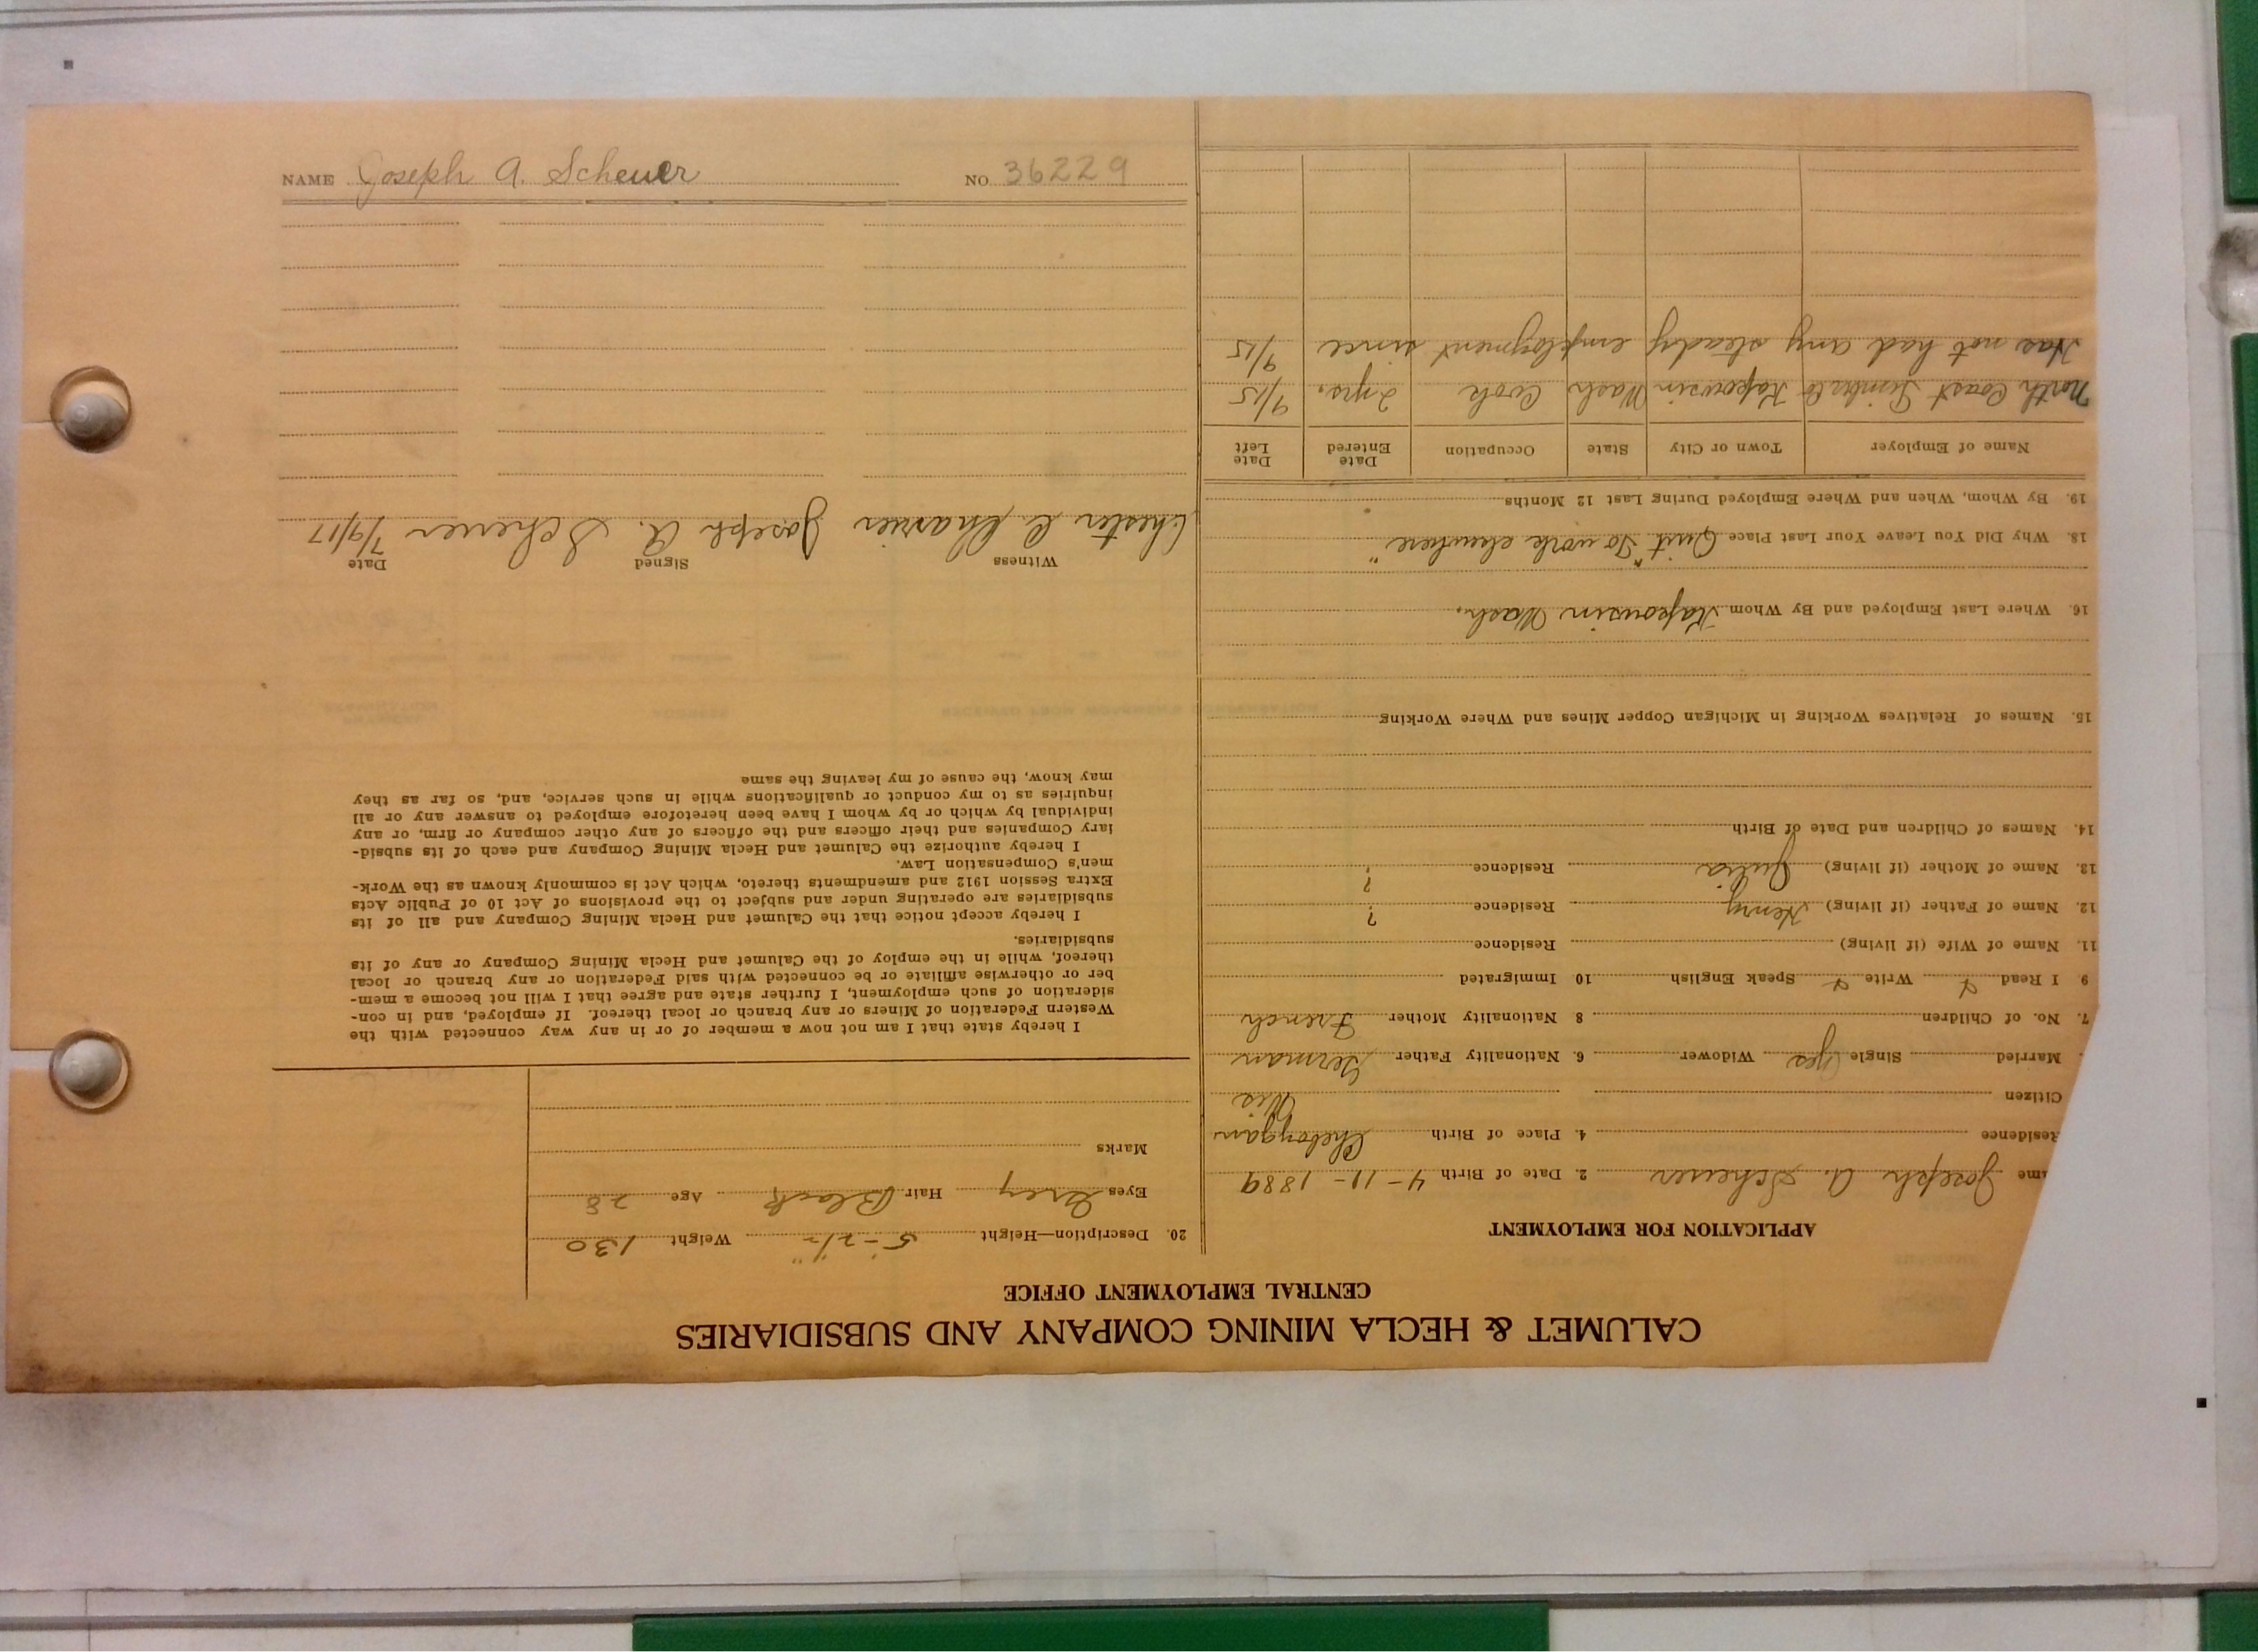 CALUMET & HECLA MINING COMPANY AND SUBSIDIARIES
CENTRAL EMPLOYMENT OFFICE
APPLICATION FOR EMPLOYMENT
ame Joseph A. Scheuer 2. Date of Birth 4-11-1889
Residence 4. Place of Birth Cheboygan
Citizen Wis
Married Single Yes Widower 6. Nationality Father German
7. No. of Children 8 Nationality Mother French
9 I Read Write Speak English 10 Immigrated
11. Name of Wife (if living) Residence
12. Name of Father (if living) Henry Residence ?
13. Name of Mother (if living) Julia Residence ?
14. Names of Children and Date of Birth
15. Names of Relatives Working in Michigan Copper Mines and Where Working
16. Where Last Employed and By Whom Kapowsin Wash.
18. Why Did You Leave Your Last Place Quit "To work elsewhere"
19. By Whom, When and Where Employed During Last 12 Months
Name of Employer Town or City State Occupation Date Entered Date Left
North Coast Timber Co Kapowsin Wash Cook 2 yrs. 9/15
Has not had any steady employment since 9/15
20. Description—Height 5'-2 1/2" Weight 130
Eyes Grey Hair Black Age 28
Marks
I hereby state that I am not now a member of or in any way connected with the
Western Federation of Miners or any branch or local thereof. If employed, and in con-
sideration of such employment, I further state and agree that I will not become a mem-
ber or otherwise affiliate or be connected with said Federation or any branch or local
thereof, while in the employ of the Calumet and Hecla Mining Company or any of its
subsidiaries.
I hereby accept notice that the Calumet and Hecla Mining Company and all of its
subsidiaries are operating under and subject to the provisions of Act 10 of Public Acts
Extra Session 1912 and amendments thereto, which Act is commonly known as the Work-
men's Compensation Law.
I hereby authorize the Calumet and Hecla Mining Company and each of its subsid-
iary Companies and their officers and the officers of any other company or firm, or any
individual by which or by whom I have been heretofore employed to answer any or all
inquiries as to my conduct or qualifications while in such service, and, so far as they
may know, the cause of my leaving the same
Witness Signed Date
Chester C. Charrier Joseph A. Scheuer 7/9/17
NAME Joseph A. Scheuer NO 36229